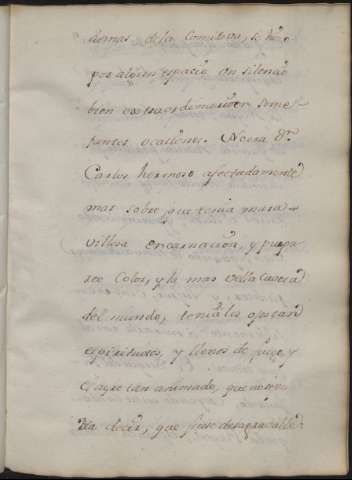 demas de la Comitiva, se hizo
por algun espacio un silencio
bien extraordinario en seme-
jantes ocasiones. No era Dn.
Carlos hermoso afectadamente
mas sobre que tenia mara-
villosa encarnacion, y purpu-
reo color, y la mas bella Cavera
del mundo, tenia los ojos tan
espirituales, y llenos de fuego, y
el ayre tan animado, que no se
decir, que fuese desagradable